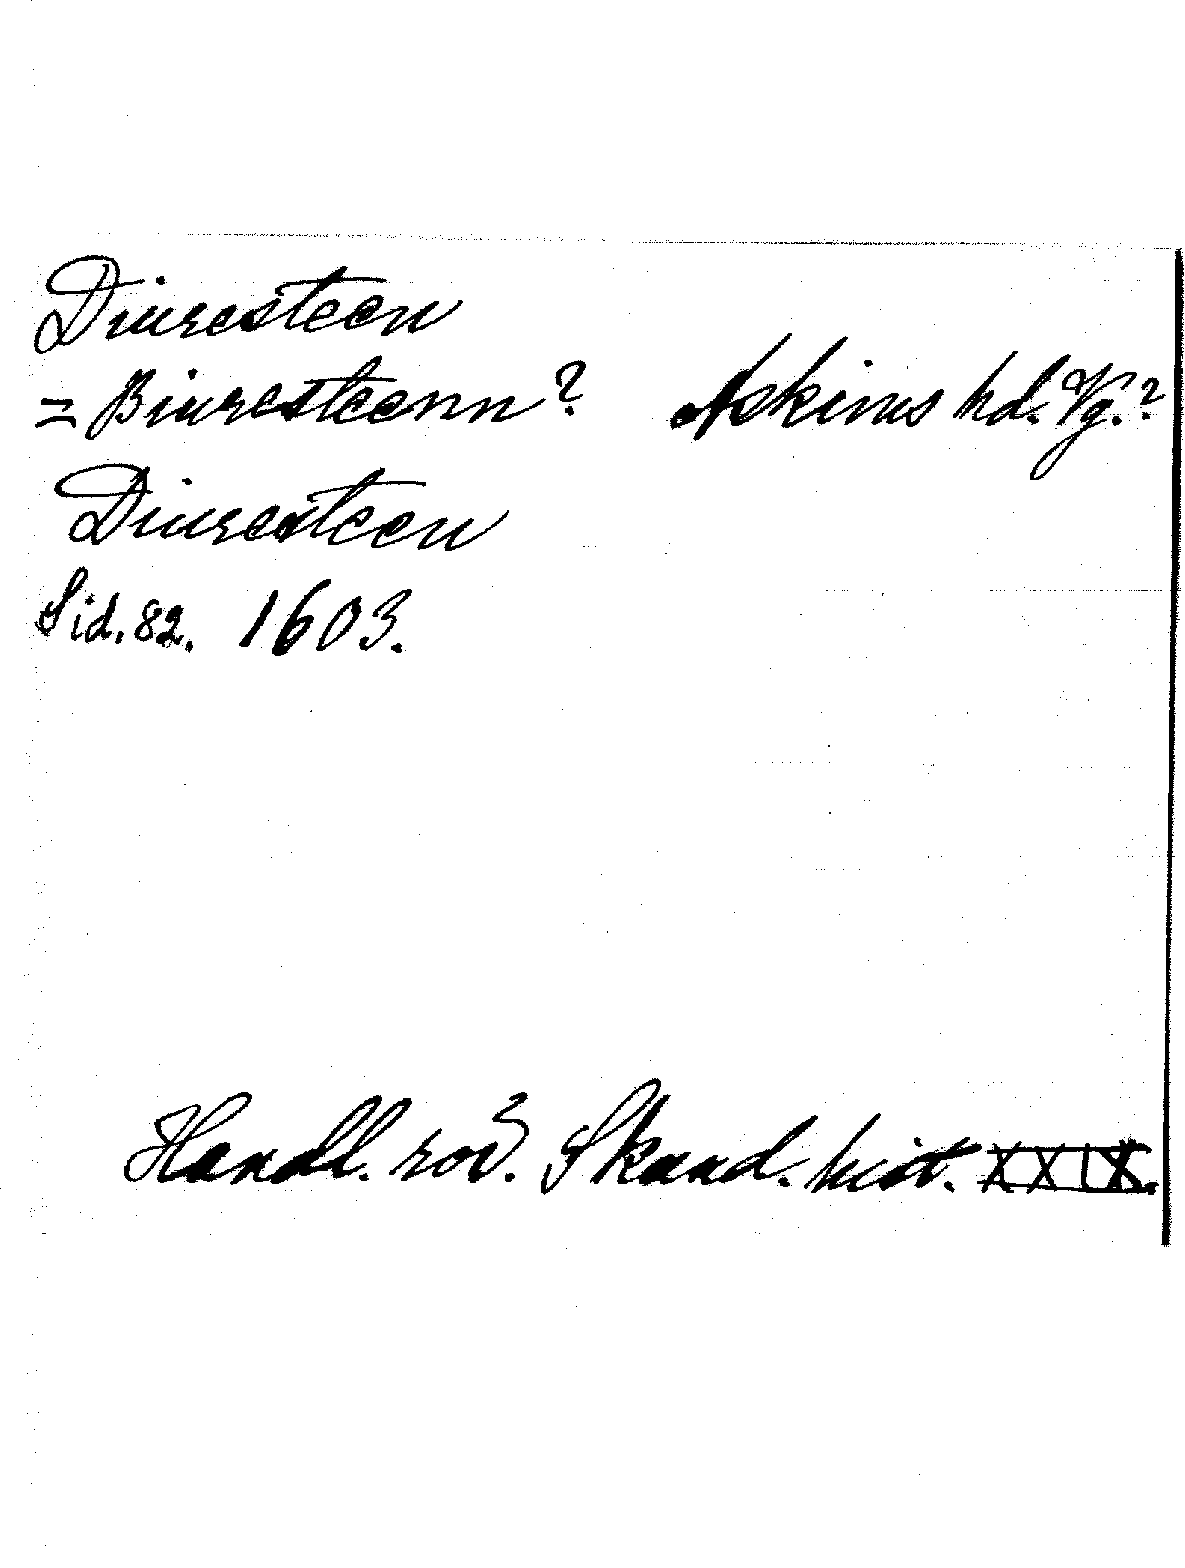 Diuresteen
= Biuresteenn? Askims hd. Vg.?
Diuresteen
Sid. 82. 1603.
Handl. rör. Skand. hist. XXIX.